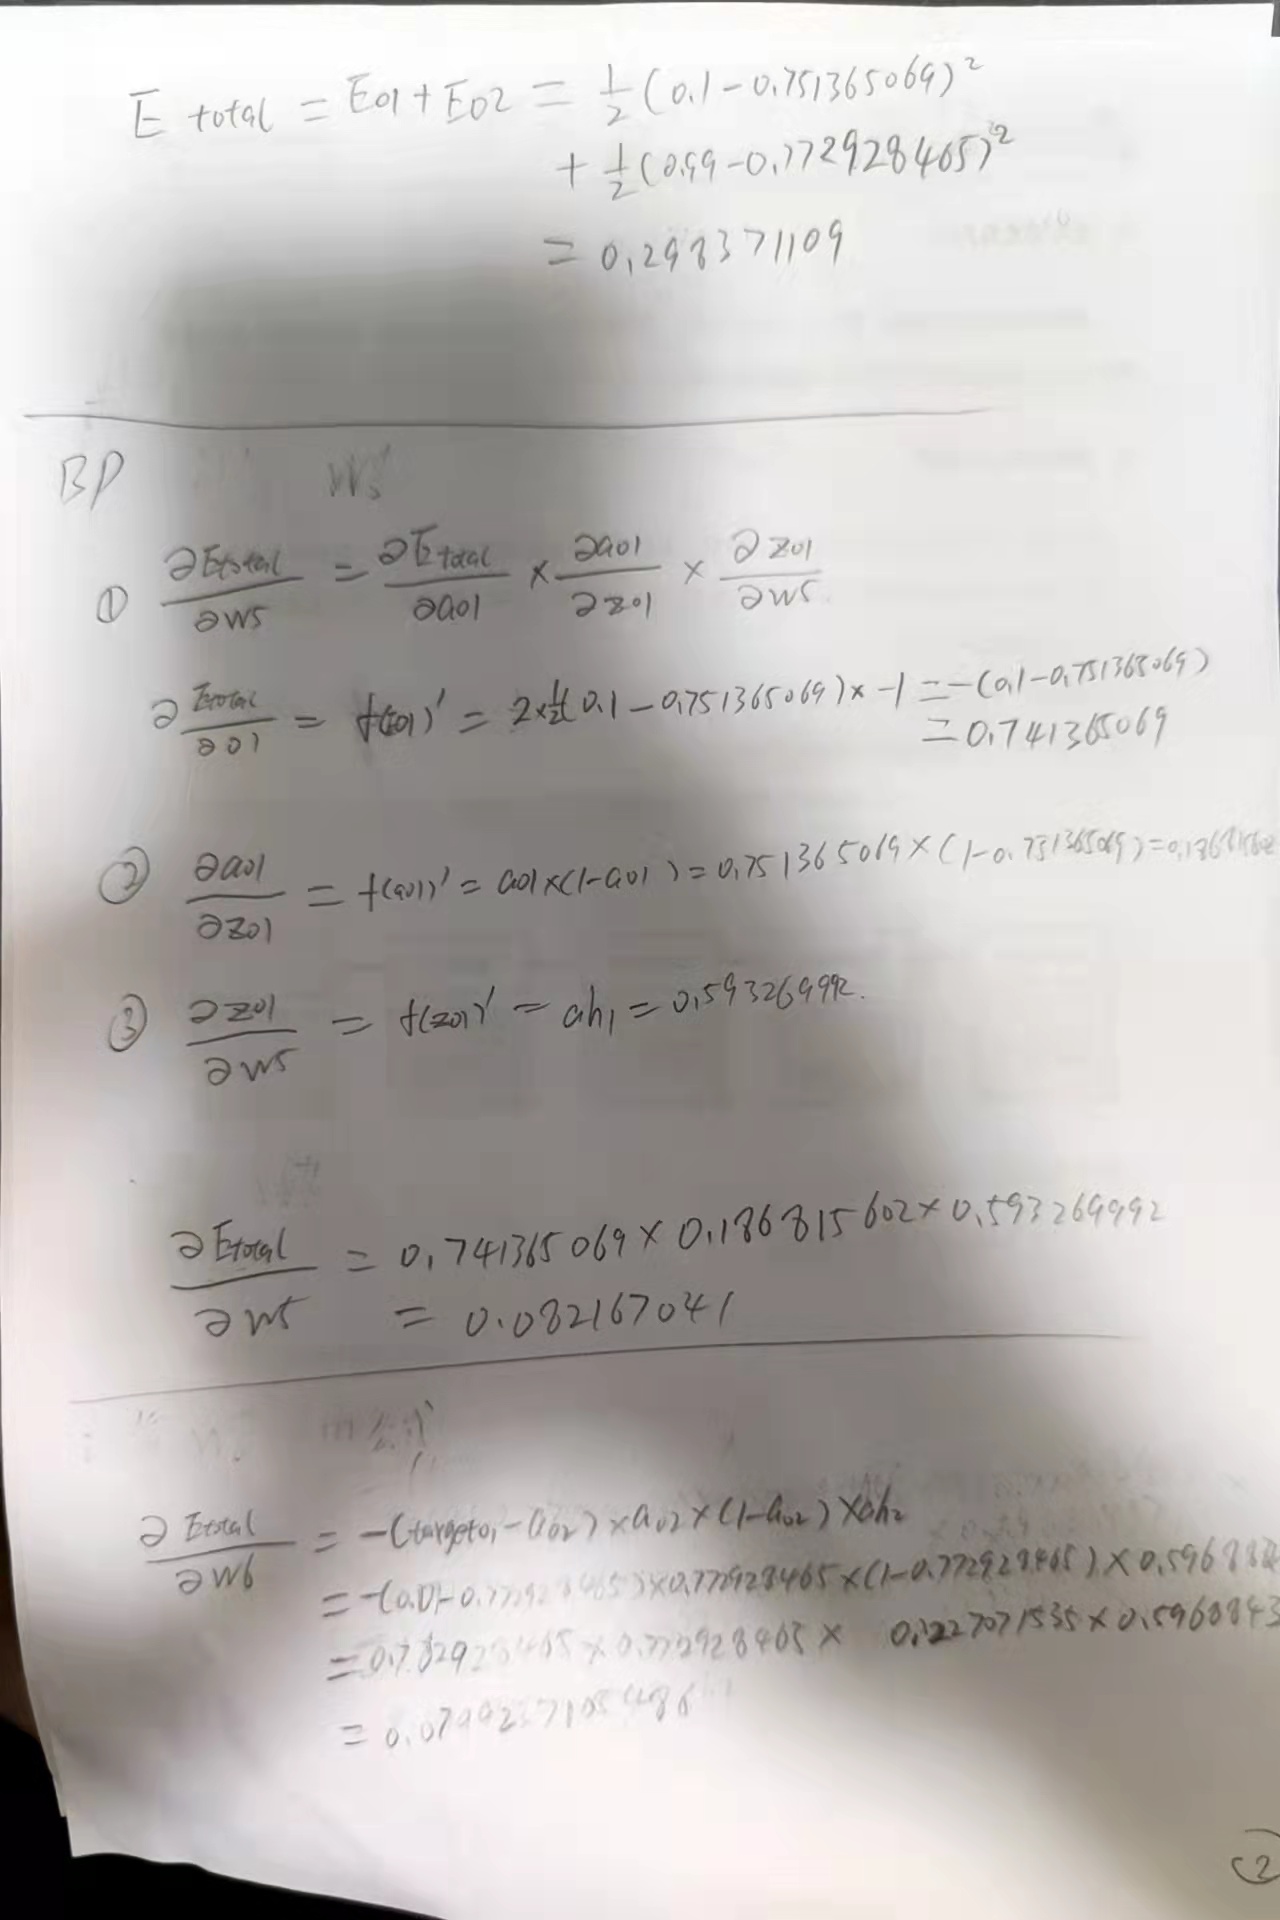 E total = E01 + E02 = 1/2 (0.1 - 0.751365069)²
+ 1/2 (0.99 - 0.772928465)²
= 0.298371109
BP W5
① ∂Etotal/∂w5 = ∂Etotal/∂a01 × ∂a01/∂z01 × ∂z01/∂w5
∂Etotal/∂01 = f(z01)' = 2×1/2(0.1 - 0.751365069) × -1 = -(0.1 - 0.751365069)
= 0.741365069
② ∂a01/∂z01 = f(a01)' = a01×(1-a01) = 0.751365069 × (1-0.751365069) = 0.186815602
③ ∂z01/∂w5 = f(z01)' = ah1 = 0.593269992.
∂Etotal/∂w5 = 0.741365069 × 0.186815602 × 0.593269992
= 0.082167041
∂Etotal/∂w6 = -(target01 - a02) × a02 × (1-a02) × ah2
= -(0.01-0.772928465)×0.772928465×(1-0.772928465)×0.59688
= 0.772928465 × 0.227071535 × 0.5968843
②